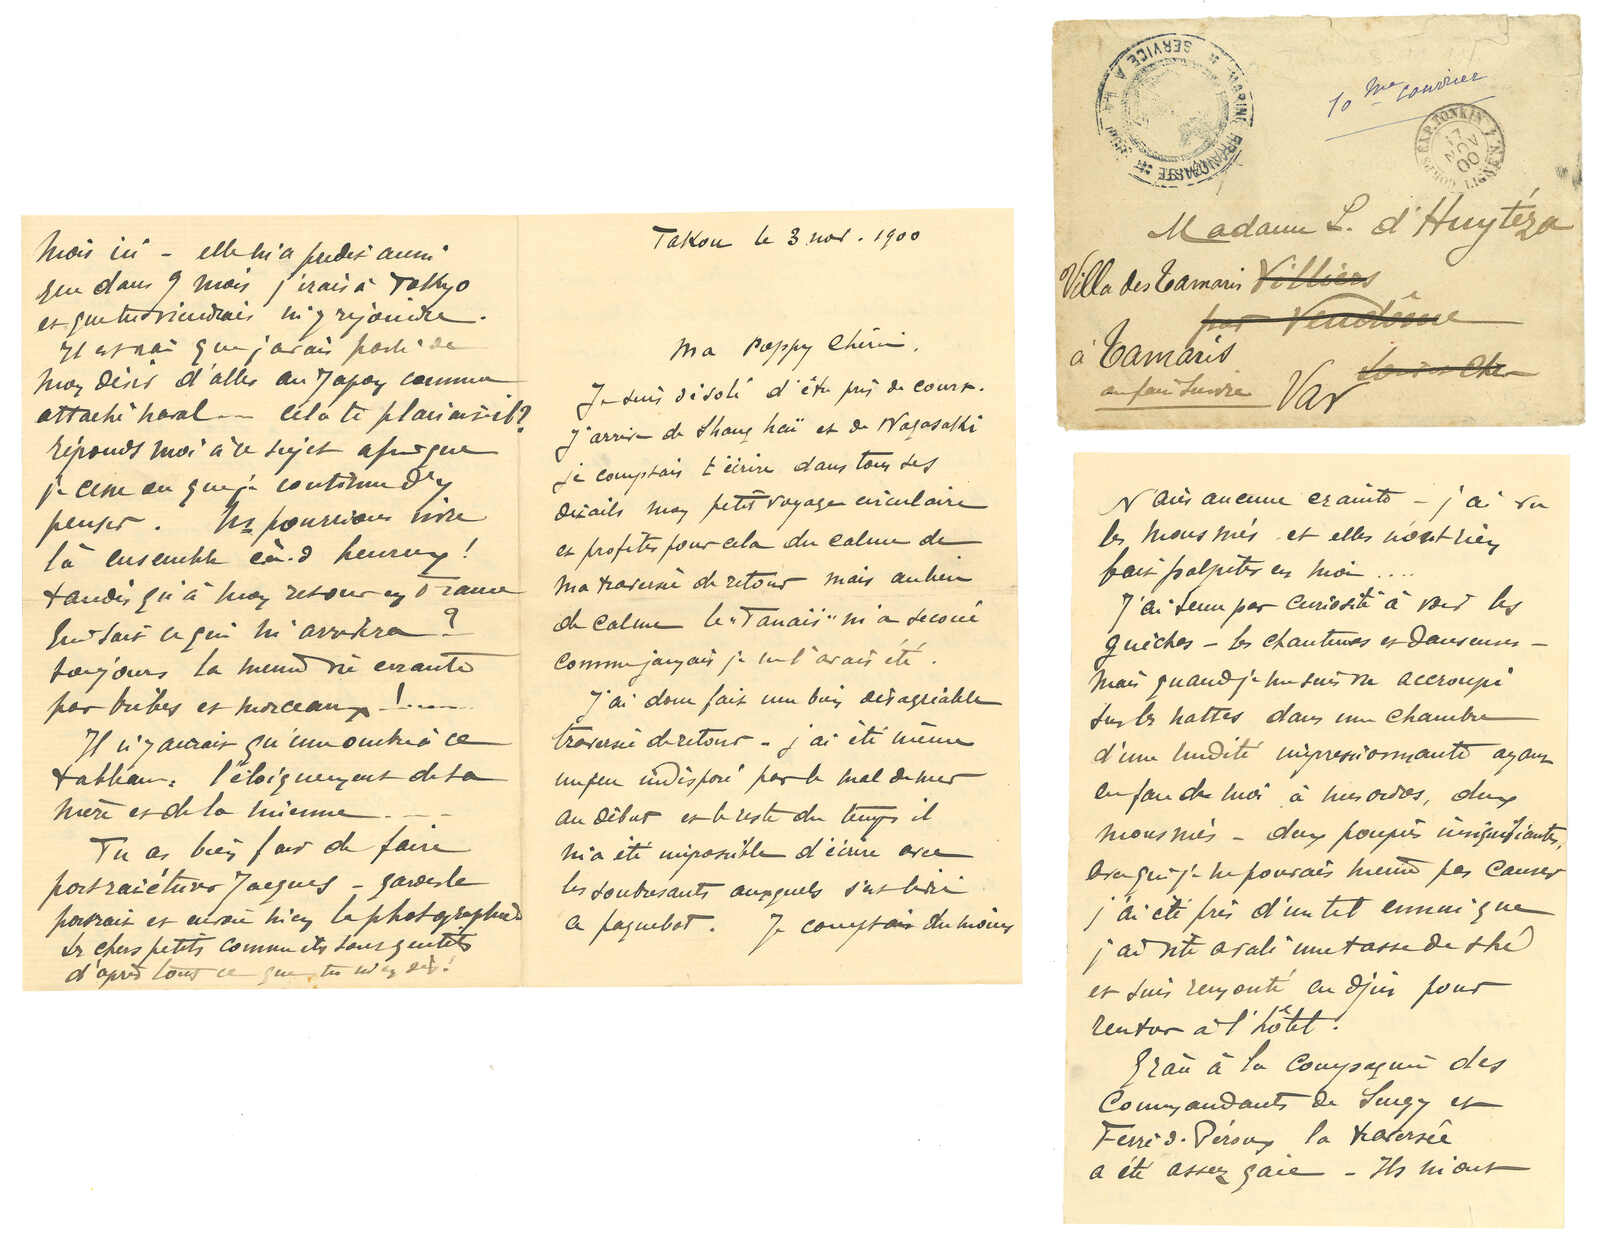 Takou le 3 nov. 1900
Ma Poppy chérie,
Je suis désolé d'être pris de court.
J'arrive de Shang haï et de Nagasaki
je comptais t'écrire dans tous ses
détails mon petit voyage circulaire
et profiter pour cela du calme de
ma traversée de retour mais au lieu
de calme le "Tanaïs" m'a secoué
comme jamais je ne l'avais été.
J'ai donc fait une bien désagréable
traversée de retour - j'ai été même
un peu indisposé par le mal de mer
au début et le reste du temps il
m'a été impossible d'écrire avec
les soubresauts auxquels s'est livré
ce paquebot. Je comptais du moins
mois ici - elle m'a prédit aussi
que dans 9 mois j'irais à Tokyo
et que tu viendrais m'y rejoindre.
Il est vrai que j'avais parlé de
mon désir d'aller au Japon comme
attaché naval -- cela te plairait-il?
réponds moi à ce sujet afin que
je cesse ou que je continue d'y
penser. Ns pourrions vivre
là ensemble heureux!
tandis qu'à mon retour en France
qui sait ce qui m'arrivera?
toujours la même vie errante
par bribes et morceaux!----
Il n'y aurait qu'une ombre à ce
tableau: l'éloignement de ta
mère et de la mienne ---
Tu as bien fait de faire
portraicturer Jacques - garde le
portrait et envoie m'en la photographie
Les chers petits comme ils sont gentils
d'après tout ce que tu m'en dis!
SERVICE A LA MER
MARINE FRANÇAISE
10 me courrier
CORPS EXP. TONKIN
LIGNE N
21
AOU
00
Madame L. d'Huytéza
Villa des Tamaris Villiers
par Vendôme
à Tamaris
Loir et Cher
en faire suivre Var
N'aies aucune crainte - j'ai vu
les mousmés et elles n'ont rien
fait palpiter en moi ....
J'ai tenu par curiosité à voir les
guèches - les chanteuses et danseuses -
mais quand je me suis vu accroupi
sur les nattes dans une chambre
d'une nudité impressionnante ayant
en face de moi à mes ordres, deux
mousmés - deux poupées insignifiantes,
avec qui je ne pouvais même pas causer
j'ai été pris d'un tel ennui que
j'ai vite avalé une tasse de thé
et suis remonté en djin pour
rentrer à l'hôtel.
Grâce à la compagnie des
Commandants de Surgy et
Ferré d. Péroux la traversée
a été assez gaie - Ils m'ont